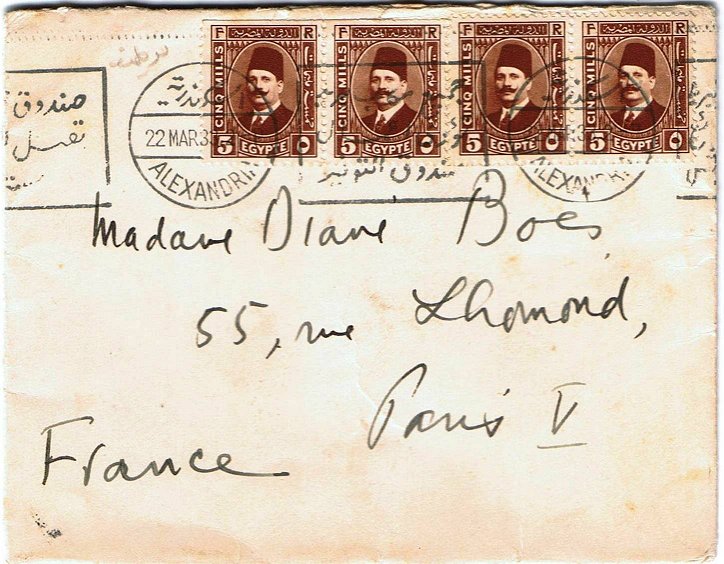 F الدولة المصرية R
CINQ MILLS
5 EGYPTE ٥
F الدولة المصرية R
CINQ MILLS
5 EGYPTE ٥
F الدولة المصرية R
CINQ MILLS
5 EGYPTE ٥
F الدولة المصرية R
CINQ MILLS
5 EGYPTE ٥
22 MAR 3
ALEXANDRI
صندوق
صندوق التوفير
ALEXANDRI
Madame Diane Boes
55, rue Lhomond,
Paris V
France